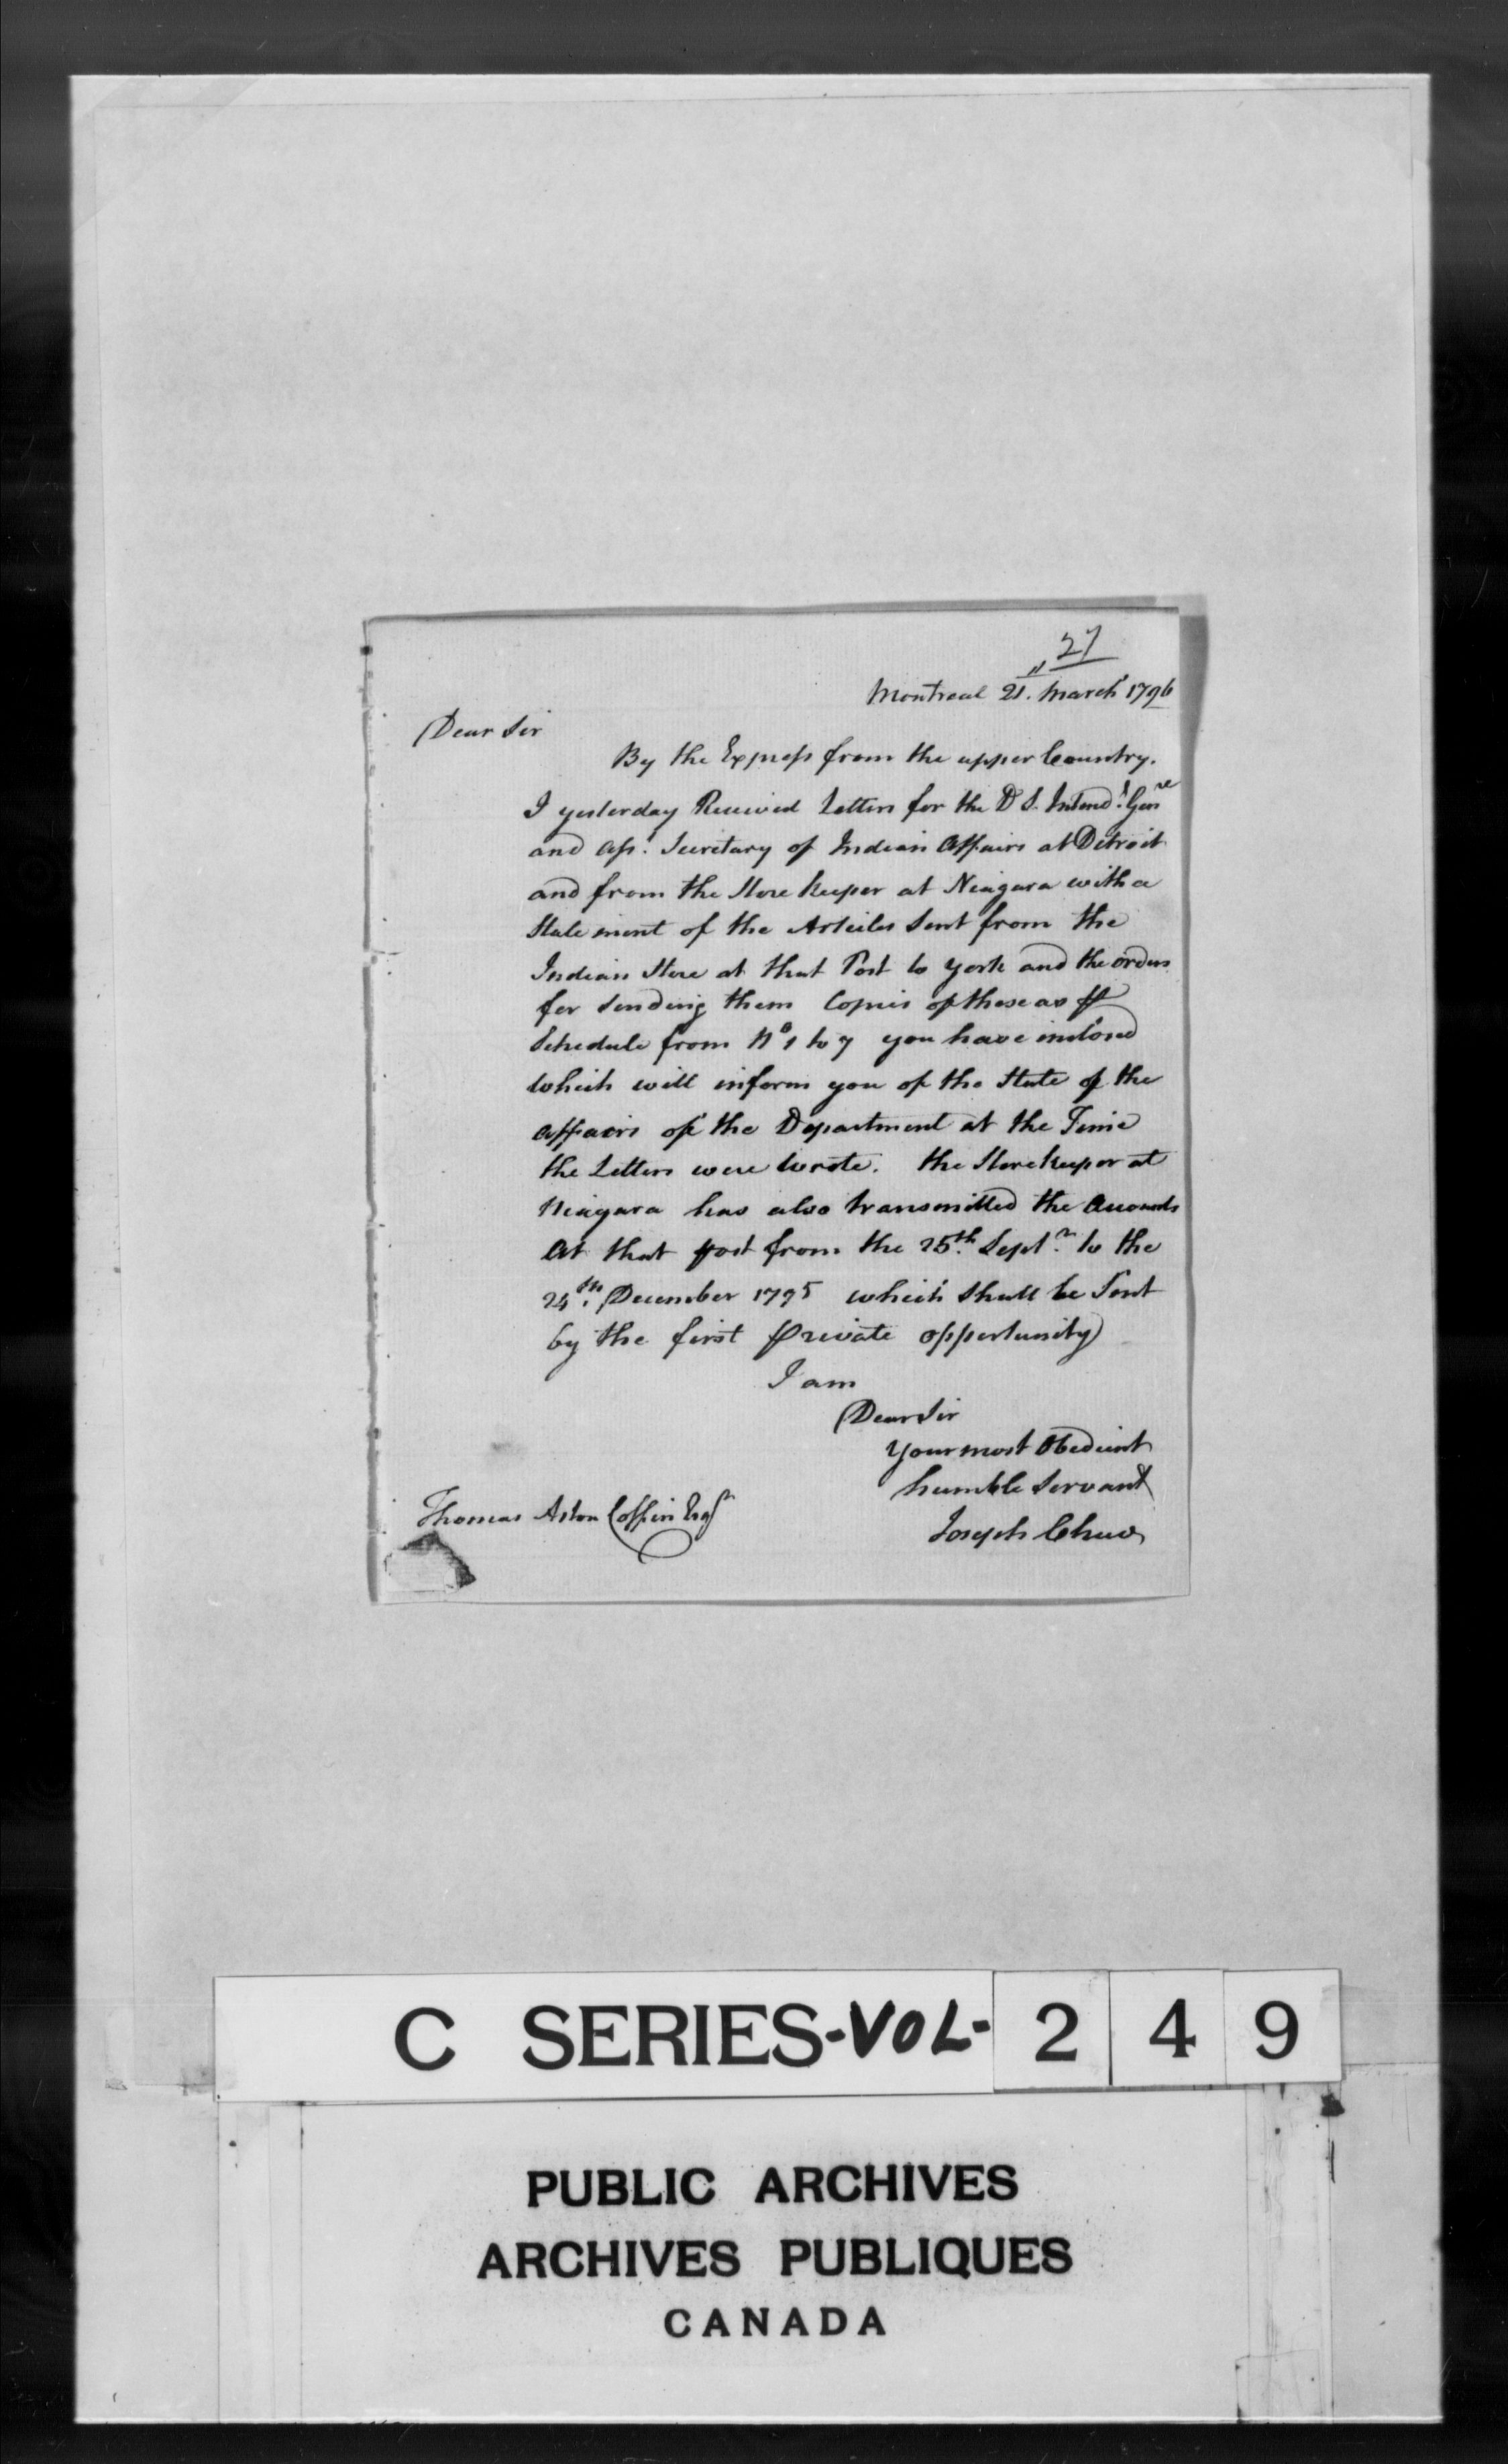 27
Montreal 21. March 1796
Dear Sir
By the Express from the upper Country.
I yesterday Received Letters for the D S. Intend.t Gen.el
and Ass.t Secretary of Indian Affairs at Detroit
and from the Store Keeper at Niagara with a
Statement of the Articles Sent from the
Indian Store at that Post to York and the orders
for sending them Copies of these as ⅌
Schedule from No 1 to 7 you have inclosed
which will inform you of the State of the
affairs of the Department at the Time
the Letters were wrote. the Storekeeper at
Niagara has also transmitted the Accounts
At that post from the 25.th Sept.r to the
24.th December 1795 which shall be Sent
by the first private oppertunity
I am
Dear Sir
Your most Obedient
humble Servant
Thomas Aston Coffin Esqr
Joseph Chew
C SERIES-VOL-249
PUBLIC ARCHIVES
ARCHIVES PUBLIQUES
CANADA